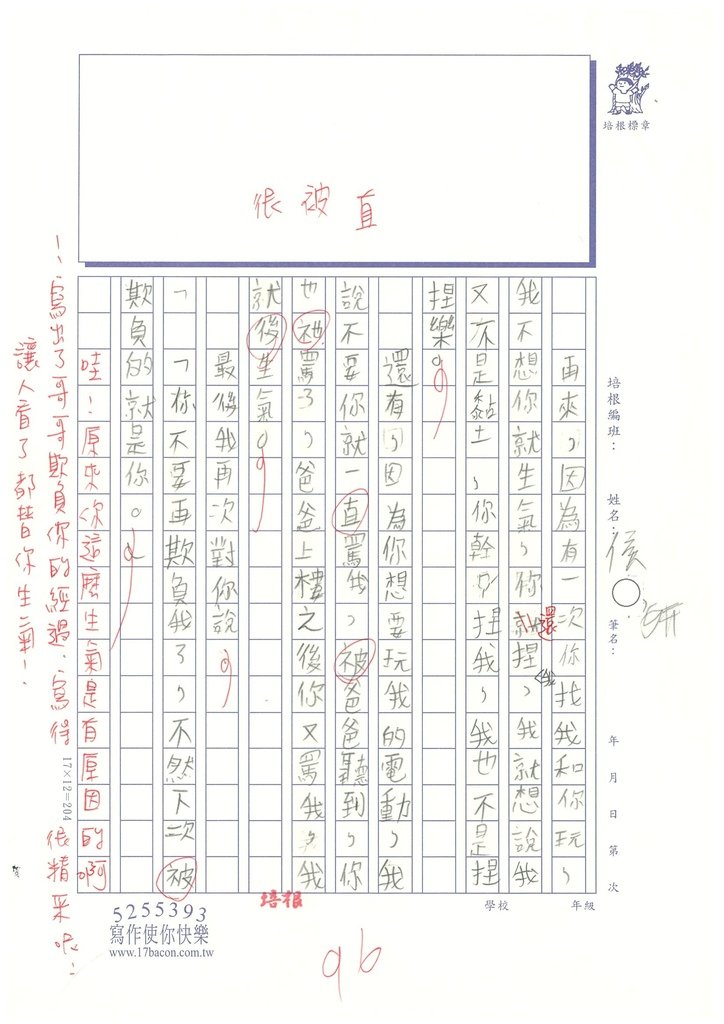 很被直
培根標章
培根編班：
姓名：侯
筆名：
年 月 日 第 次
學校 年級
再來，因為有一次你找我和你玩，
我不想你就生氣，你還捏我，我就想說我
又不是黏土，你幹嘛捏我，我也不是捏
捏樂。
還有，因為你想要玩我的電動，我
說不要你就一直罵我，被爸爸聽到，你
也被罵了，爸爸上樓之後你又罵我，我
就後生氣。
最後我再次對你說，
「「你不要再欺負我了，不然下次被
欺負的就是你。
哇！原來你這麼生氣是有原因的啊
！！寫出了哥哥欺負你的經過，寫得很精采哦！
讓人看了都替你生氣！
17×12=204
培根
5255393
寫作使你快樂
www.17bacon.com.tw
96